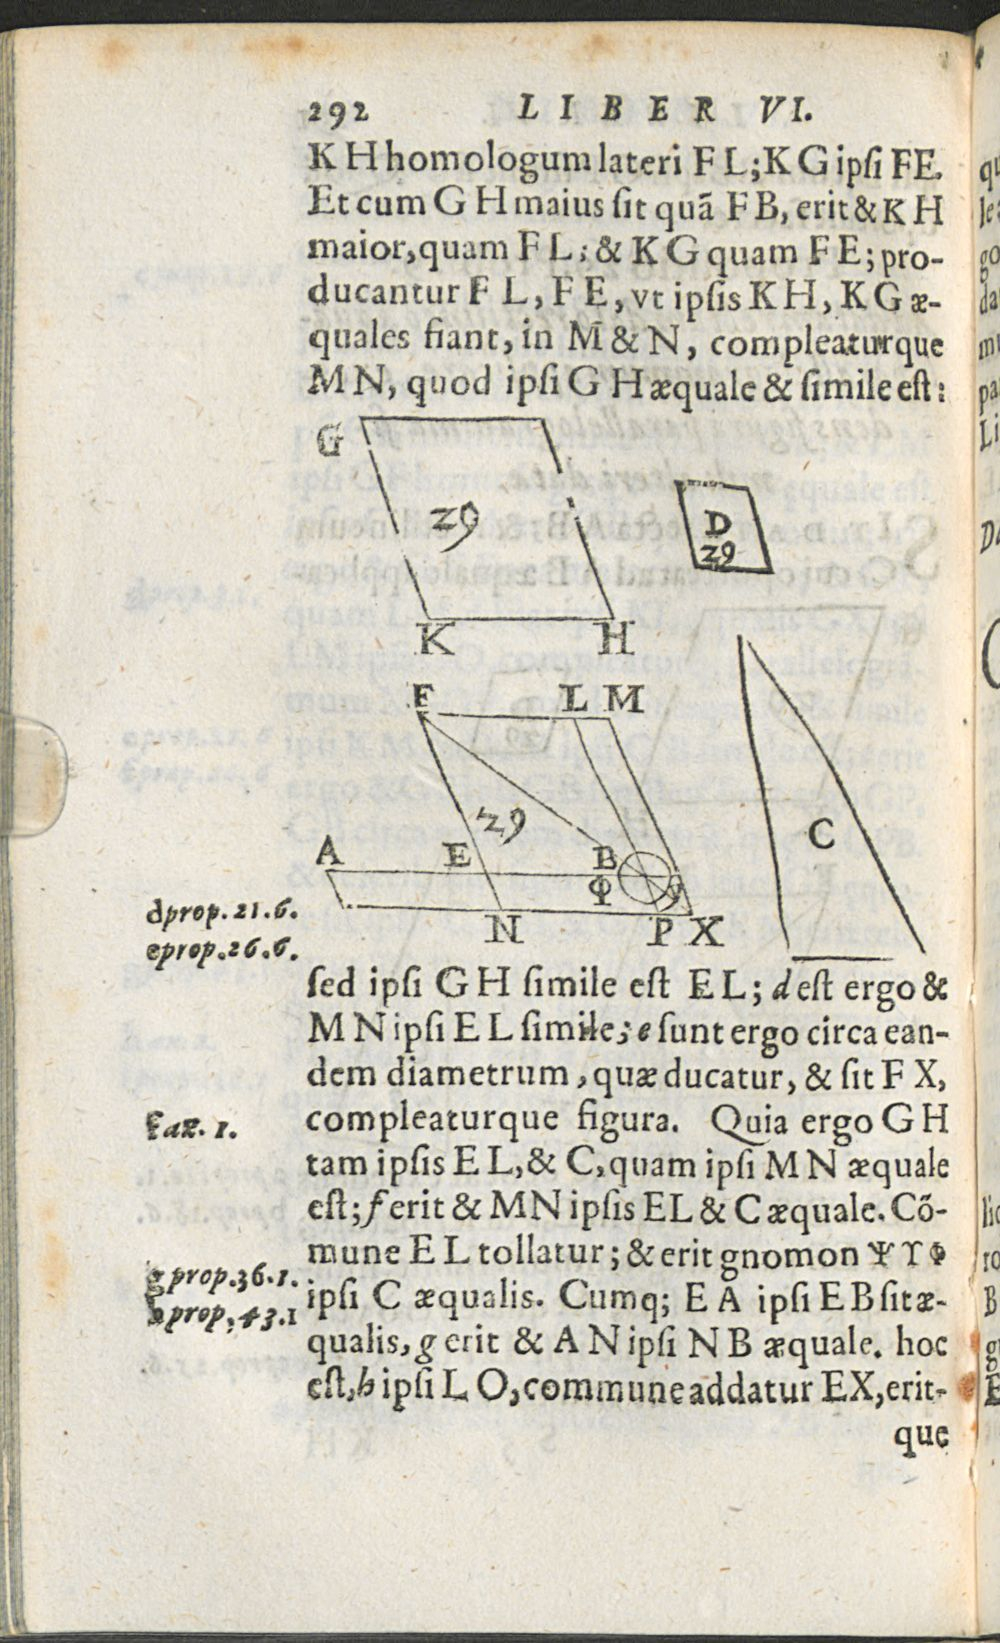 292 LIBER VI.
K H homologum lateri F L; K G ipſi FE.
Et cum G H maius ſit quã F B, erit & K H
maior, quam F L; & K G quam F E; pro-
ducantur F L, F E, vt ipſis K H, K G æ-
quales fiant, in M & N, compleaturque
M N, quod ipſi G H æquale & ſimile eſt:
G
29
D
29
K H
F L M
29
C
A E B
Φ
N P X
dprop. 21. 6.
eprop. 26. 6.
ſed ipſi G H ſimile eſt E L; d eſt ergo &
M N ipſi E L ſimile; e ſunt ergo circa ean-
dem diametrum, quæ ducatur, & ſit F X,
compleaturque figura. Quia ergo G H
fax. 1.
tam ipſis E L, & C, quam ipſi M N æquale
eſt; f erit & MN ipſis EL & C æquale. Cõ-
mune E L tollatur; & erit gnomon Ψ ϒ Φ
gprop. 36. 1.
ipſi C æqualis. Cumq; E A ipſi E B ſit æ-
hprop. 43. 1
qualis, g erit & A N ipſi N B æquale. hoc
eſt, h ipſi L O, commune addatur EX, erit-
que